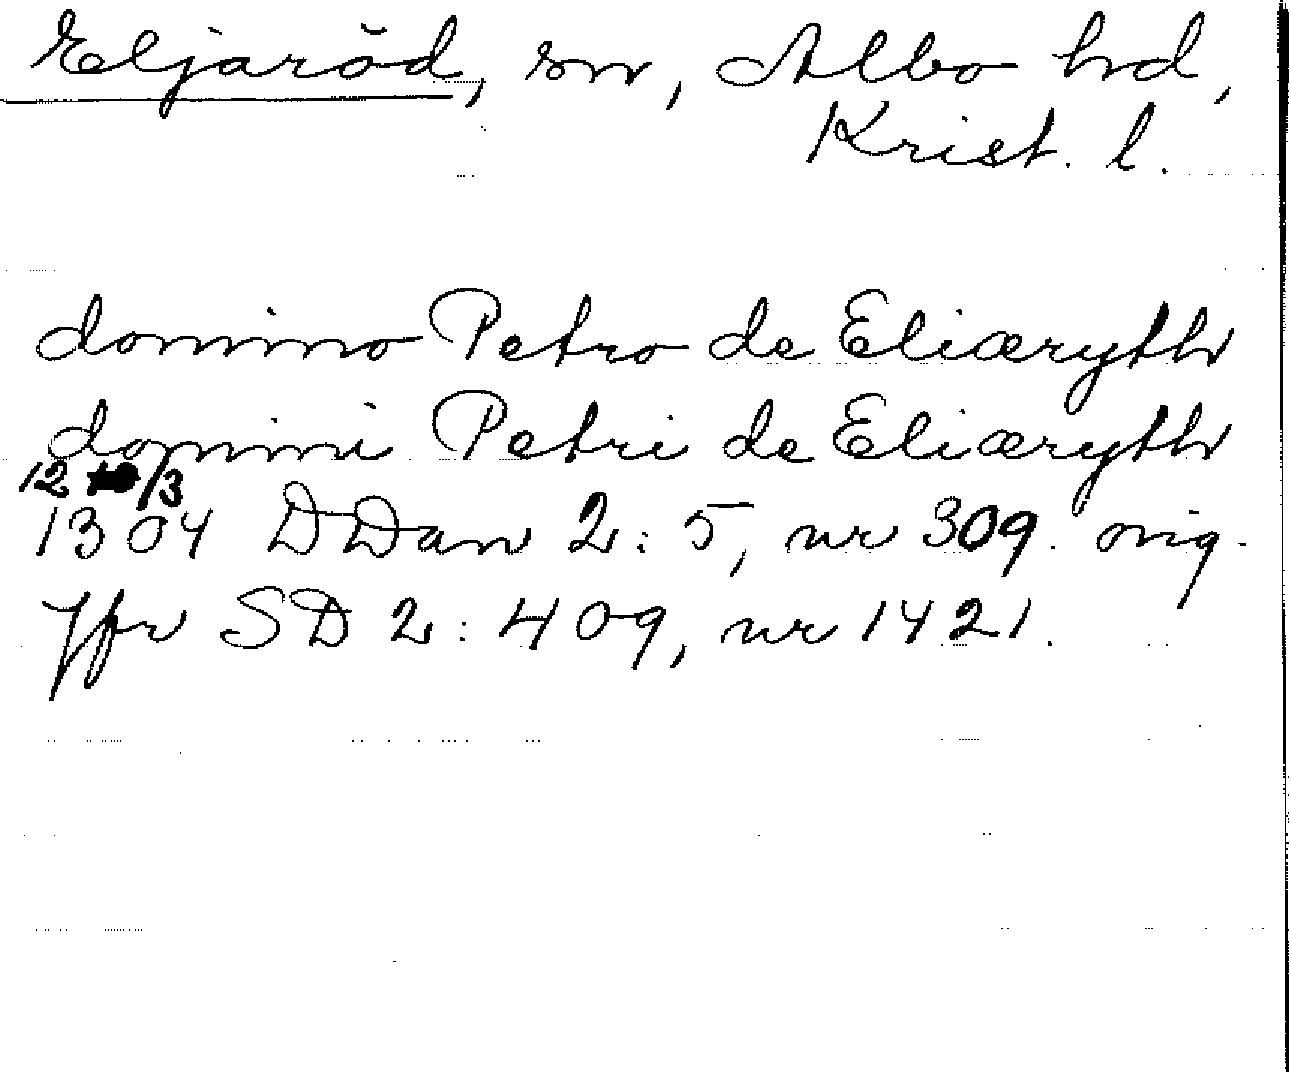 Eljaröd, sn, Albo hd,
Krist. l.
domino Petro de Eliæryth
domini Petri de Eliæryth
12 /3
1304 DDan 2:5, nr 309. orig.
Jfr SD 2:409, nr 1421.